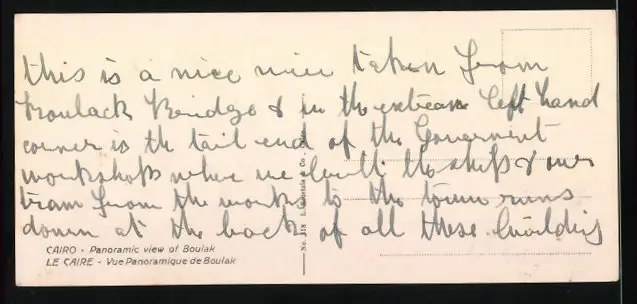 this is a nice view taken from
Boulack Bridge & in the extreame left hand
corner is the tail end of the Goverment
workshops where we built the ships & our
tram from the works to the town runs
down at the back of all these buildings
CAIRO - Panoramic view of Boulak
LE CAIRE - Vue Panoramique de Boulak
No. 318 & Co., Cairo